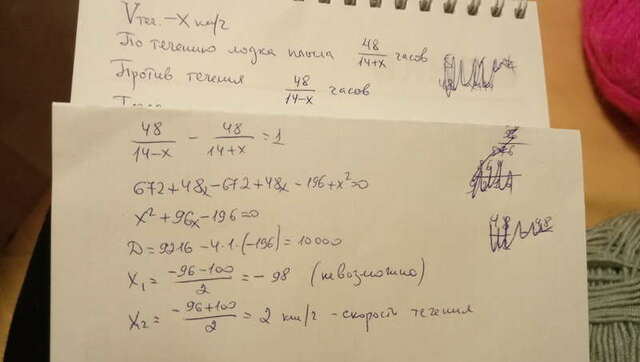 Vтеч. – x км/ч
По течению лодка плыла 48/14+x часов
Против течения 48/14–x часов
48/14–x – 48/14+x = 1
672+48x–672+48x–196+x²=0
x²+96x–196=0
D=9216–4·1·(–196)=10000
x₁= –96–100/2 = –98 (невозможно)
x₂= –96+100/2 = 2 км/г – скорость течения